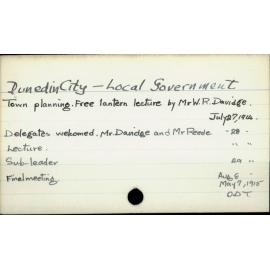 Dunedin City – Local Government
Town planning. Free lantern lecture by Mr W.R. Davidge.
July 27, 1914.
Delegates welcomed. Mr. Davidge and Mr Reade - 28 -
Lecture. " "
Sub-leader 29 "
Final meeting Aug 5 -
May 7, 1915
ODT